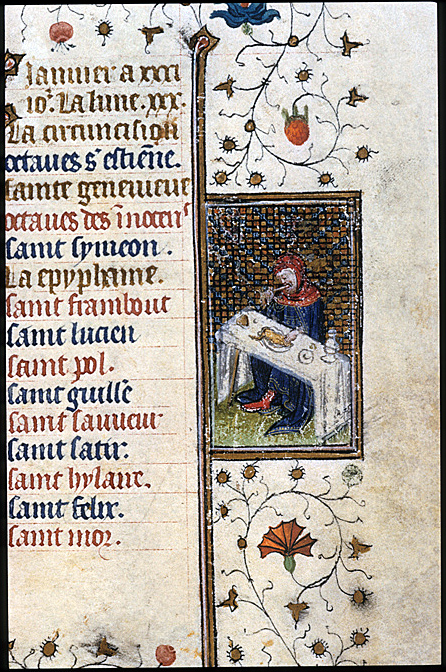 Januier a xxxi
iors. La lune. xxx.
La circuncision
octaues s' estiēne.
sainte geneuieue
octaues des īnocens
saint symeon.
La epyphanie.
saint frambout
saint lucien
saint pol.
saint guille
saint sauueur
saint satir.
saint hylaire.
saint felix.
saint mor.